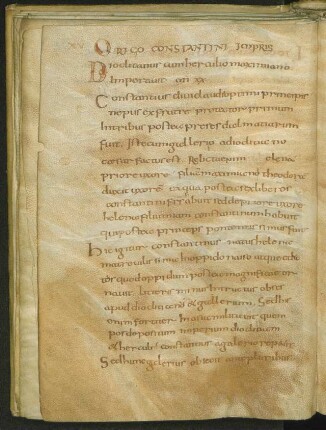 ORIGO CONSTANTINI IMPRIS
Diocletianus cum herculio maximiano
Imperauit ann xx
Constantius diui claudii optimi principis
nepus ex fratre protector primum
Intribus postea preses dalmatiarum
fuit Iste cum gallerio adiocletiano
cesar factus est Relicta enim elena
priore uxore filia maximiano theodoru
ducit uxore ex qua postea sex liberos
constantini fratrabuit sed depriore uxore
helena filium iam constantinum habuit
qui postea princeps potentissimus fuit
hic igitur constantinus natus helena
matre uilissime In oppido naiso atque educ
tos quod oppidum postea magnifice or
nauit litteris minus instructus obses
apud diocletianu et gallerium Sedhe
enim fortiter In asia militauit quem
post depositum Imperium diocletiani
et herculi constantius agalerio repe
Sed hunc galerius obiecit ante pluribus